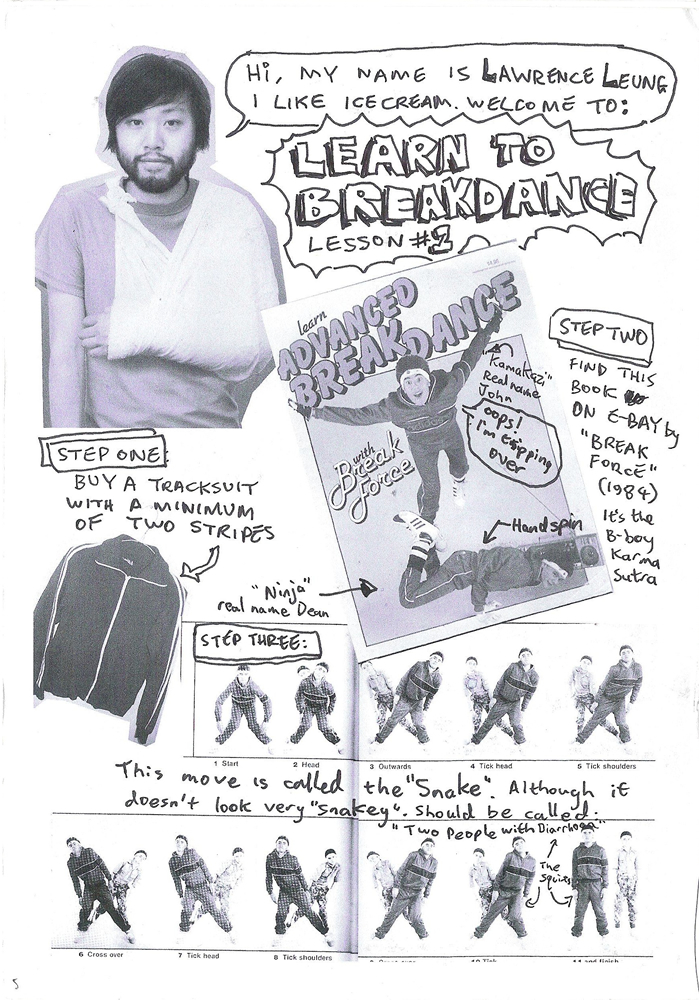 Hi, MY NAME IS LAWRENCE LEUNG
I LIKE ICECREAM. WELCOME TO:
LEARN TO
BREAKDANCE
LESSON #1
learn
ADVANCED
BREAKDANCE
with
Break
Force
"KamaKazi"
Real name
John
oops!
I'm tripping
over
Handspin
"Ninja"
real name Dean
STEP ONE:
BUY A TRACKSUIT
WITH A MINIMUM
OF TWO STRIPES
STEP TWO
FIND THIS
BOOK
ON E-BAY by
"BREAK
FORCE"
(1984)
It's the
B-boy
Karma
Sutra
STEP THREE:
1 Start
2 Head
3 Outwards
4 Tick head
5 Tick shoulders
This move is called the "Snake". Although it
doesn't look very "snakey". Should be called:
"Two People with Diarrhoea"
The
Squirts
6 Cross over
7 Tick head
8 Tick shoulders
10 Tick
11 and finish
5